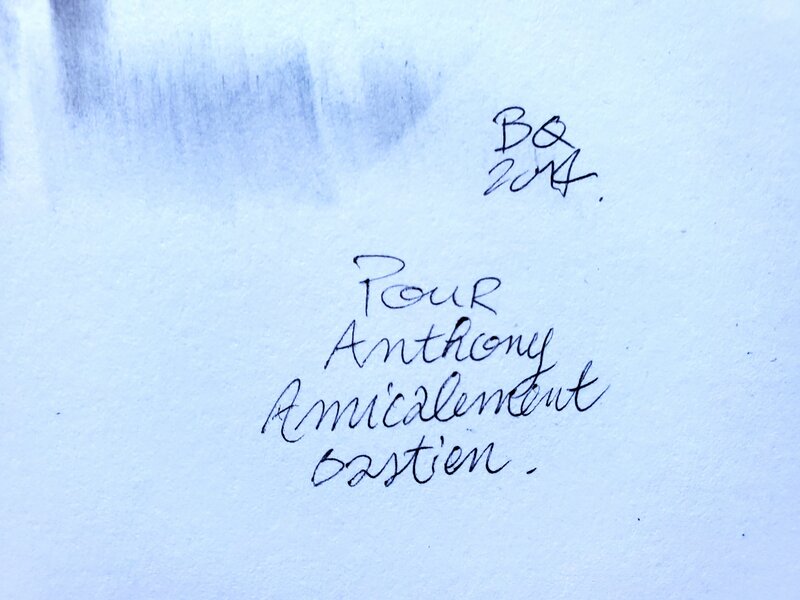 BQ
2014.
Pour
Anthony
Amicalement
Bastien.